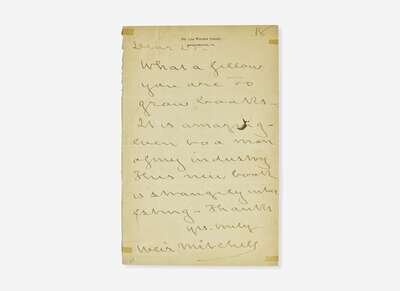 18
Dear Dr.
What a fellow
you are to
grow books -
It is amazing -
even to a man
of my industry
This new book
is strangely inter
esting - Thanks
yrs. truly
Weir Mitchell